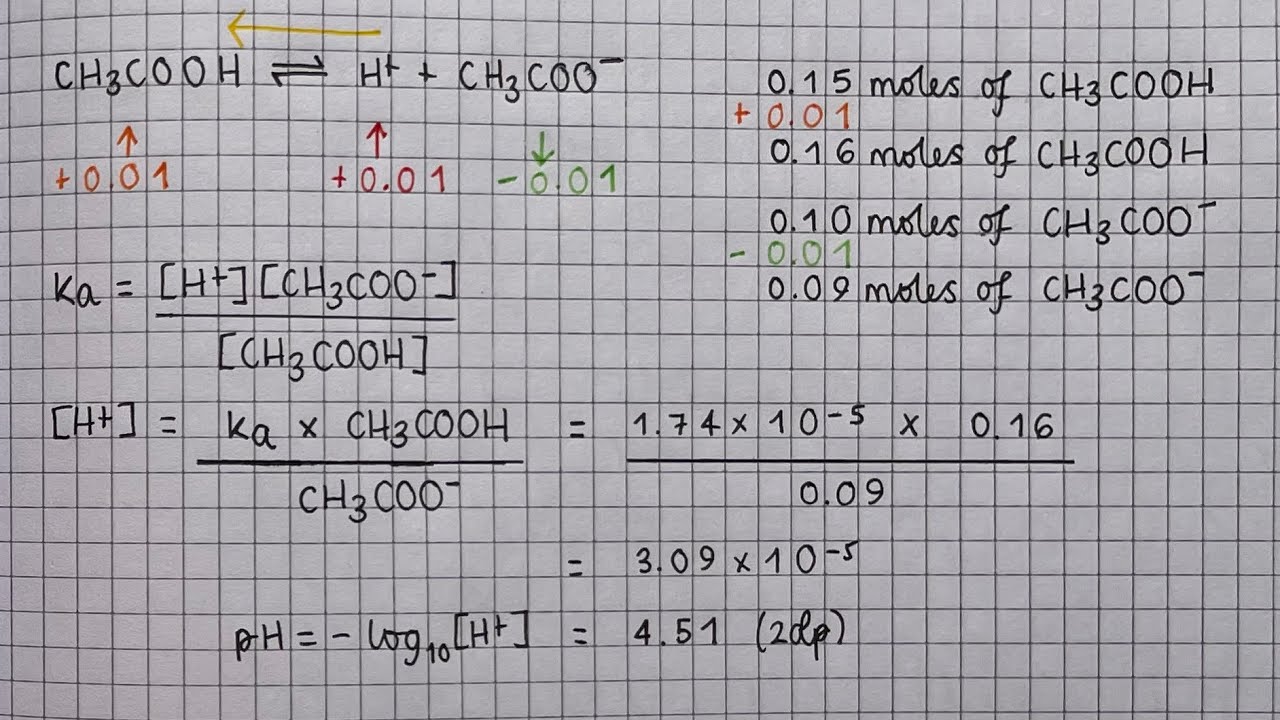 CH3COOH ⇌ H+ + CH3COO−
+0.01 +0.01 −0.01
0.15 moles of CH3COOH
+ 0.01
0.16 moles of CH3COOH
0.10 moles of CH3COO−
− 0.01
0.09 moles of CH3COO−
Ka = [H+][CH3COO−]
[CH3COOH]
[H+] = Ka × CH3COOH = 1.74 × 10−5 × 0.16
CH3COO− 0.09
= 3.09 × 10−5
pH = − log10[H+] = 4.51 (2dp)